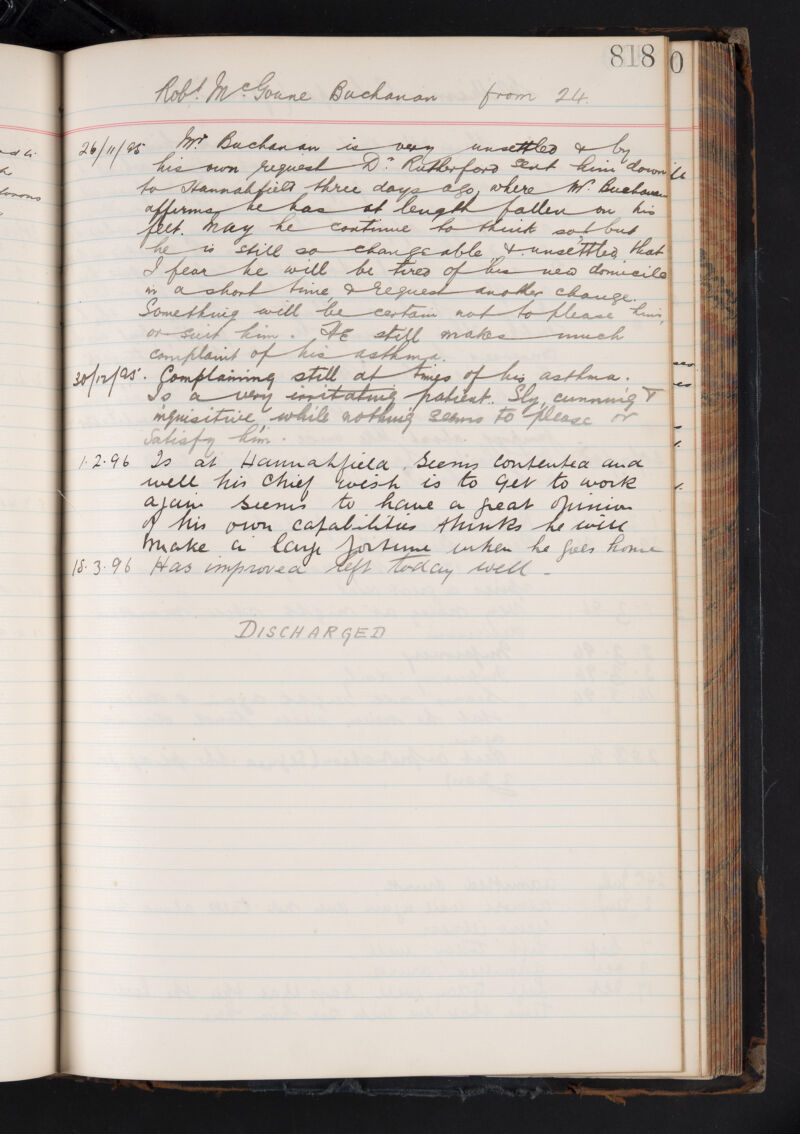 818
Robt. McGoune Buchanan from 24.
26/11/95 Mr Buchanan is very unsettled & by
his own request Dr. Rutherford sent him down
to Hannahfield three days ago, where Mr. Buchanan
affirms he has at length fallen on his
feet. May he continue to think so! but
he is still so changeable & unsettled that
I fear he will be tired of his new domicile
in a short time, & request another change.
Something will be certain not to please him,
or suit him. He still makes much
complaint of his asthma.
30/12/95. Complaining still at times of his asthma.
Is a very irritating patient. Sly, cunning &
inquisitive while nothing seems to please or
satisfy him.
1.2.96 Is at Hannahfield. Seems contented and
well his chief wish is to get to work
again seems to have a great opinion
of his own capabilities thinks he will
make a large fortune when he goes home
18.3.96 Has improved left today well -
DISCHARGED